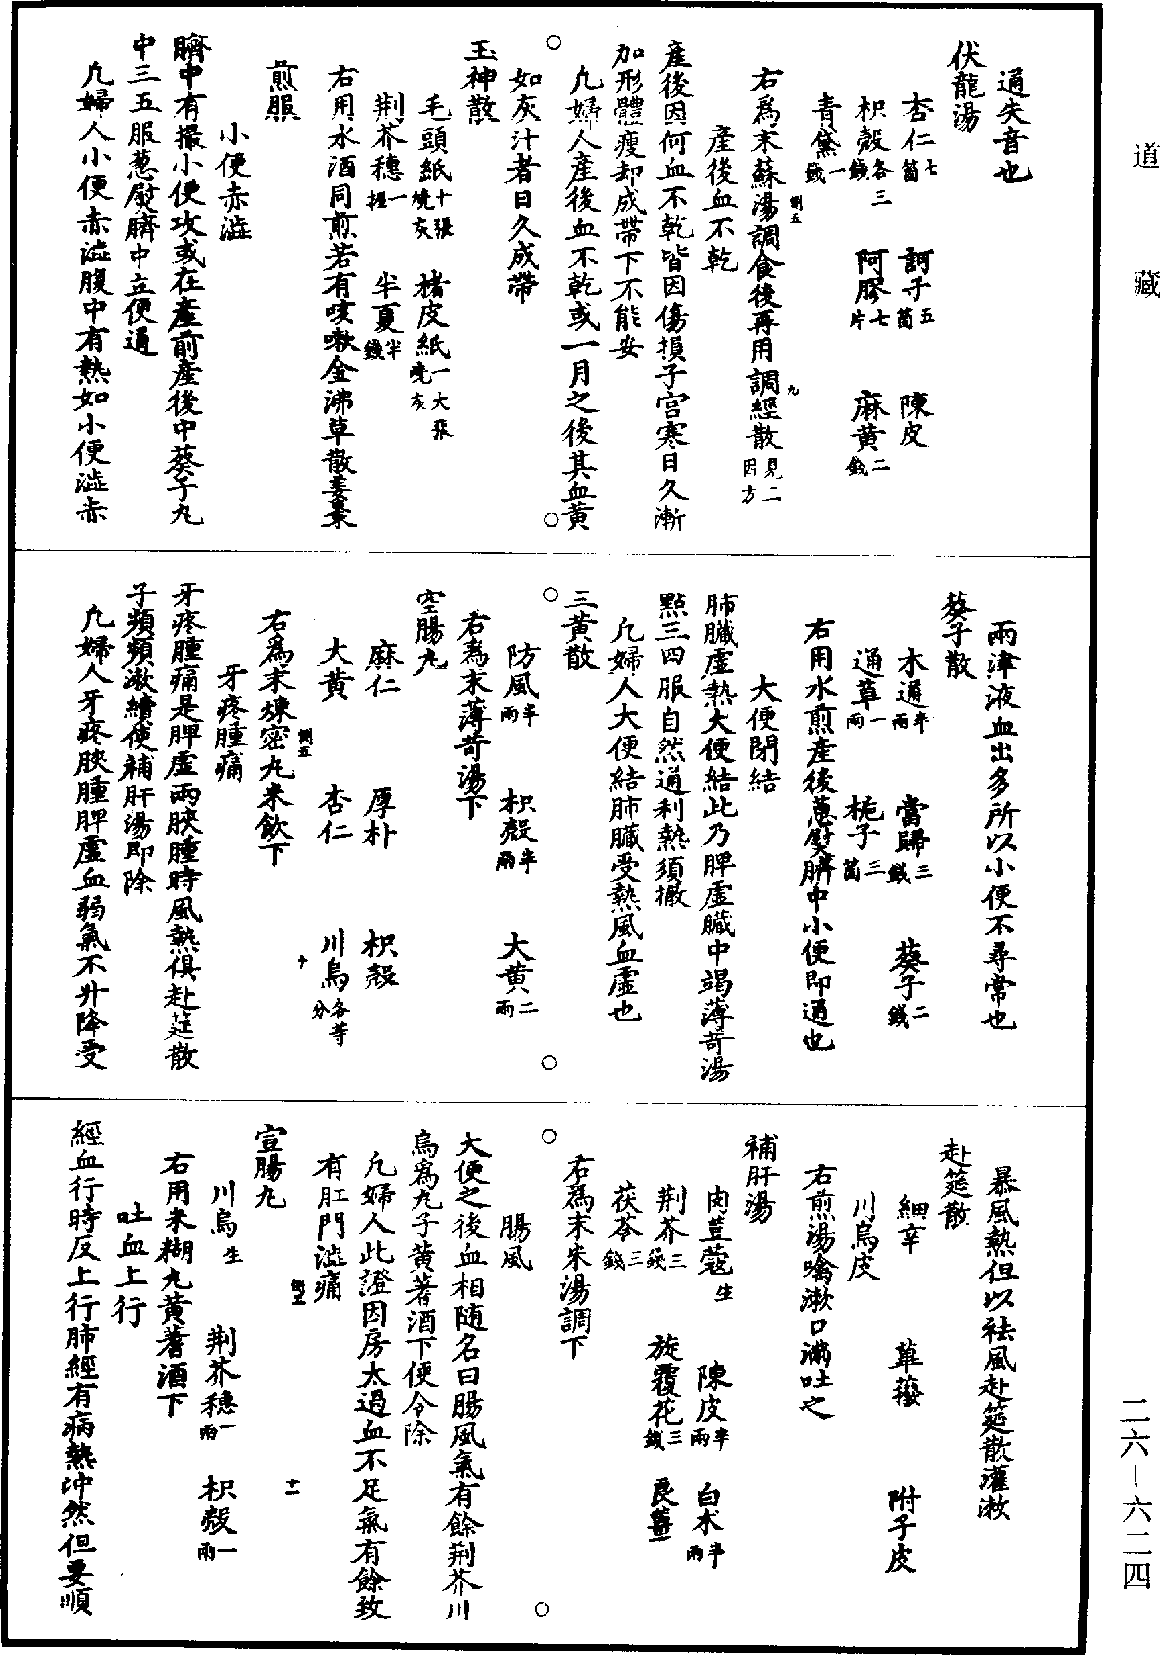 道藏
通失音也
伏龍湯
杏仁七箇　訶子五箇　陳皮
枳殼各三錢　阿膠七片　麻黃二錢
青黛一錢
側五　九
右為末蘇湯調食後再用調經散見二因方
產後血不乾
產後因何血不乾皆因傷損子宮寒日久漸
加形體瘦却成帶下不能安
凢婦人產後血不乾或一月之後其血黃
如灰汁者日久成帶
玉神散
毛頭紙十張燒灰　楮皮紙一大張燒灰
荆芥穗一握　半夏半錢
右用水酒同煎若有咳嗽金沸草散姜棗
煎服
小便赤澁
臍中有撮小便攻或在產前產後中葵子丸
中三五服葱熨臍中立便通
凢婦人小便赤澁腹中有熱如小便澁赤
雨津液血出多所以小便不尋常也
葵子散
木通半兩　當歸三錢　葵子二錢
通草一兩　梔子三箇
右用水煎產後葱熨臍中小便即通也
大便閉結
肺臟虛熱大便結此乃脾虛臟中竭薄苛湯
點三四服自然通利熱須撤
凢婦人大便結肺臟受熱風血虛也
三黃散
防風半兩　枳殼半兩　大黃二兩
右為末薄苛湯下
空腸丸
麻仁　厚朴　枳殼
大黃　杏仁　川烏各等分
側五　十
右為末煉密丸米飲下
牙疼腫痛
牙疼腫痛是脾虛兩腴腫時風熱俱赴筵散
子頻頻漱續使補肝湯即除
凢婦人牙疼腴腫脾虛血弱氣不升降受
暴風熱但以祛風赴筵散灌漱
赴筵散
細辛　蓽撥　附子皮
川烏皮
右煎湯噙漱口滿吐之
補肝湯
肉荳蔻生　陳皮半兩　白术半兩
荆芥三錢　旋覆花三錢　良薑
茯苓三錢
右為末米湯調下
腸風
大便之後血相随名曰腸風氣有餘荆芥川
烏為丸子黃蓍酒下便令除
凢婦人此證因房太過血不足氣有餘致
有肛門澁痛
側五　十一
宣腸丸
川烏生　荆芥穗一兩　枳殼一兩
右用米糊丸黃蓍酒下
吐血上行
經血行時反上行肺經有病熱冲然但要順
二六—六二四